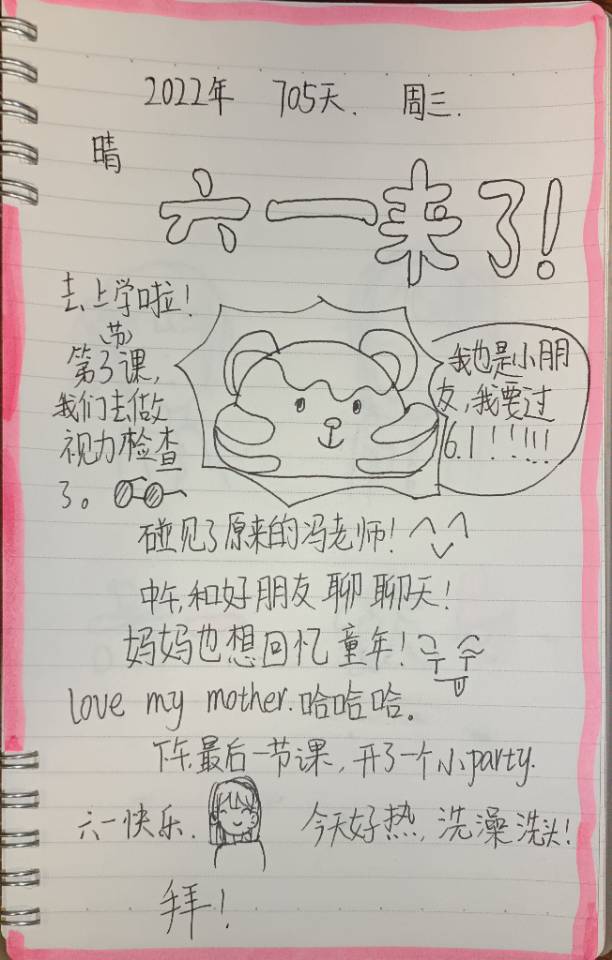 2022年 705天. 周三.
晴
六一来了!
去上学啦!
(节)
第3课,
我们去做
视力检查
了。
我也是小朋
友,我要过
6.1!!!!!
碰见了原来的冯老师!
中午,和好朋友聊聊天!
妈妈也想回忆童年!
love my mother.哈哈哈。
下午最后一节课,开了一个小party.
六一快乐. 今天好热,洗澡洗头!
拜!